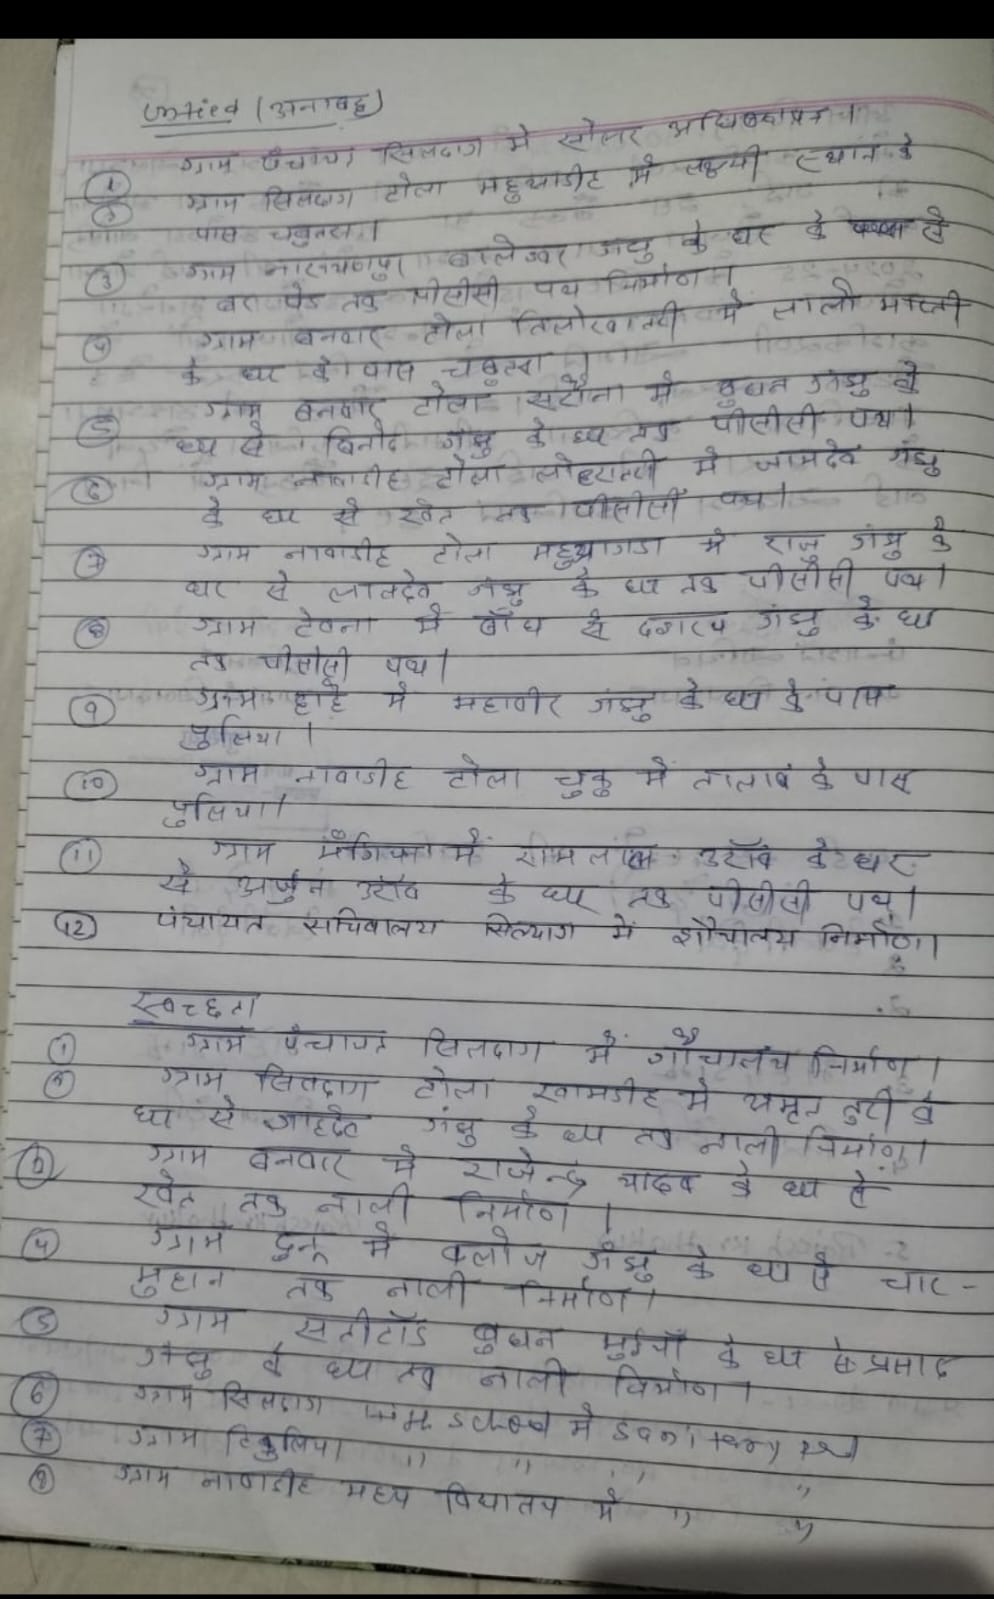 Untied (अनाबद्ध)
① ग्राम पंचायत सिलदाग मे सोलर अधिष्ठापन ।
② ग्राम सिलदाग टोला महुआडीह मे लक्ष्मी स्थान के
पास चबुतरा ।
③ ग्राम नारायणपुर बालेश्वर गंझु के घर के से
बरा पेड तक पीसीसी पथ निर्माण ।
④ ग्राम बनवार टोला मे लालो
के घर के पास चबुतरा ।
⑤ ग्राम बनवार टोला मे बुधन गंझु के
घर से बिनोद गंझु के घर तक पीसीसी पथ ।
⑥ ग्राम नावाडीह टोला मे जामदेव गंझु
के घर से खेत तक पीसीसी पथ ।
⑦ ग्राम नावाडीह टोला मे राजु गंझु के
घर से लालदेव गंझु के घर तक पीसीसी पथ ।
⑧ ग्राम टेवना मे बाँध से दशरथ गंझु के घर
तक पीसीसी पथ ।
⑨ ग्राम हाहे मे महावीर गंझु के घर के पास
पुलिया ।
⑩ ग्राम नावाडीह टोला चुकु में तालाब के पास
पुलिया ।
⑪ ग्राम में उराँव के घर
से अर्जुन उराँव के घर तक पीसीसी पथ ।
⑫ पंचायत सचिवालय सिलदाग में शौचालय निर्माण ।
स्वच्छता
① ग्राम पंचायत सिलदाग में शौचालय निर्माण ।
② ग्राम सिलदाग टोला खामडीह मे अमृत तुरी के
घर से गंझु के घर तक नाली निर्माण ।
③ ग्राम बनवार मे राजेन्द्र यादव के घर से
खेत तक नाली निर्माण ।
④ ग्राम मे गंझु के घर से चार-
मुहान तक नाली निर्माण ।
⑤ ग्राम बुधन भुईयाँ के घर से प्रसाद
गंझु के घर तक नाली निर्माण ।
⑥ ग्राम सिलदाग school मे
⑦ ग्राम टिकुलिया " " " "
⑧ ग्राम नावाडीह मध्य विद्यालय मे " "